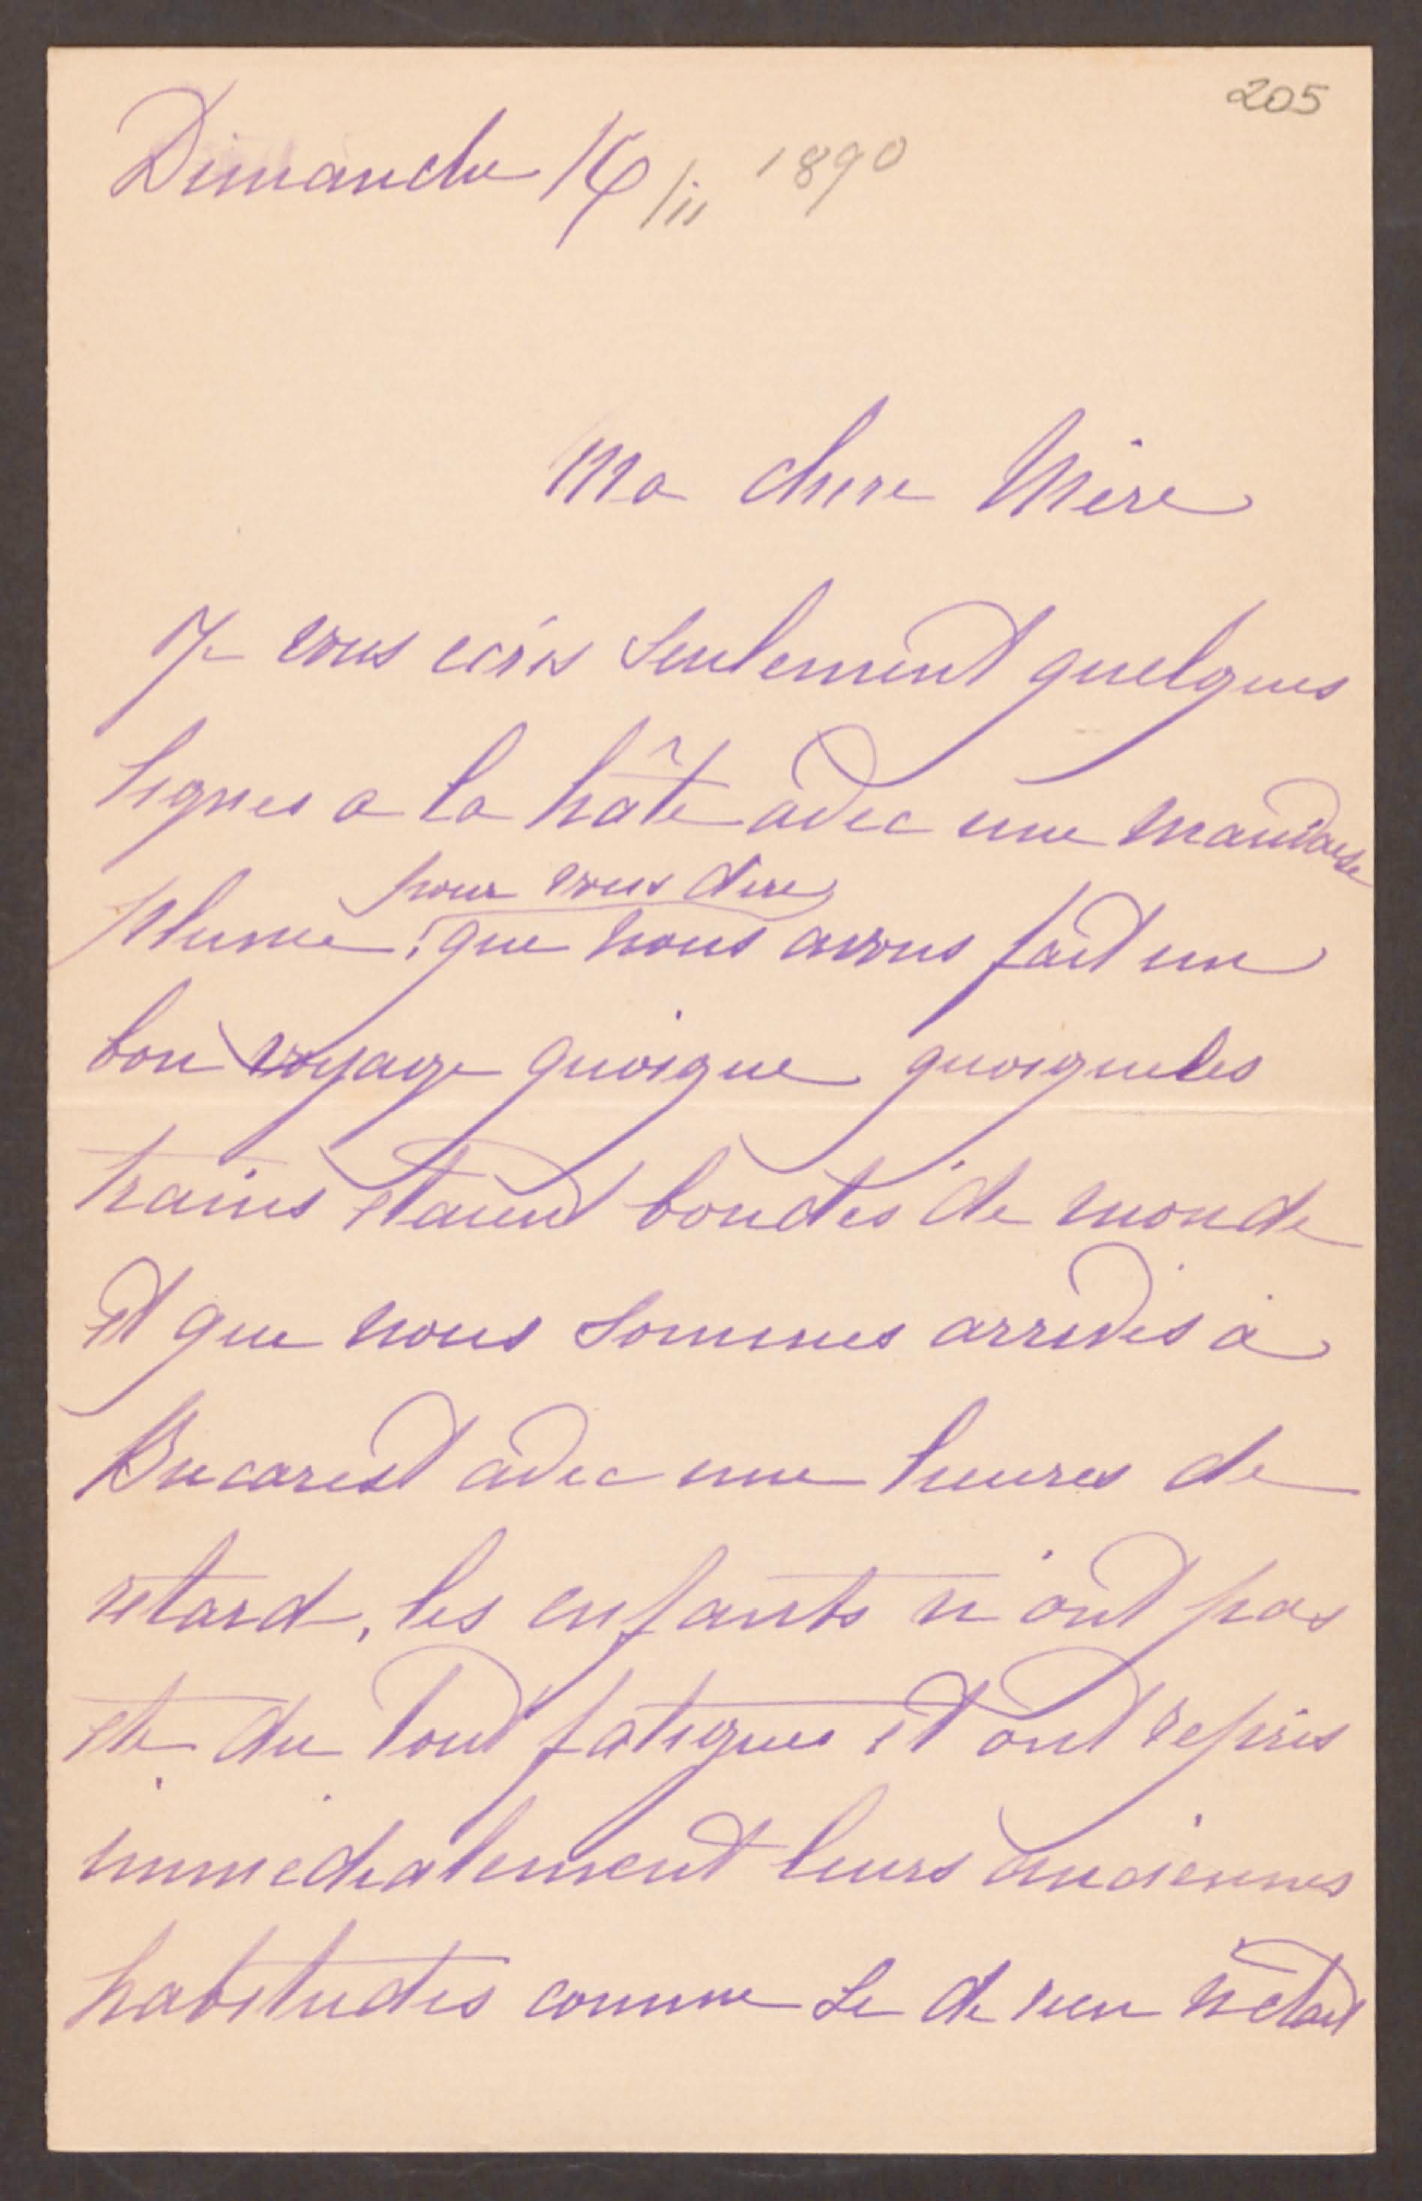 205
Dimanche 16/11 1890
Ma chere Mère
Je vous ecris seulement quelques
lignes a la hâte avec une mauvaise
pour vous dire
plume, que nous avons fait un
bon voyage quoique quoique les
trains etaient bondés de monde
et que nous sommes arrivés à
Bucarest avec une heures de
retard, les enfants n'ont pas
ete du tout fatigues et ont repris
immediatement leurs anciennes
habitudes comme si de rien n'etait